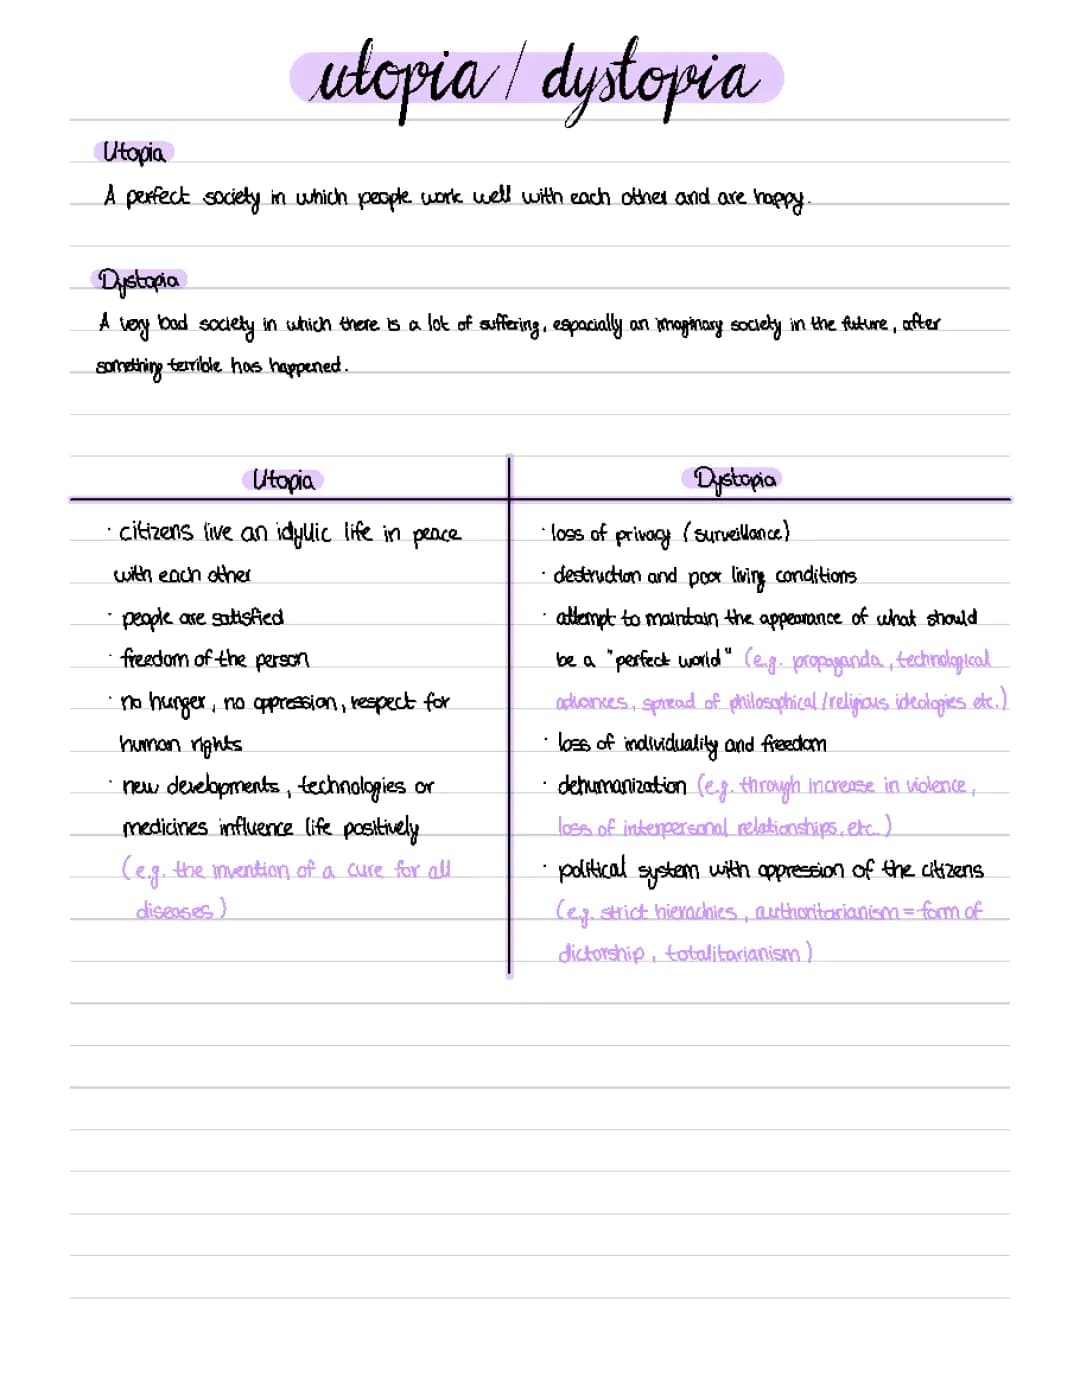 utopia / dystopia
Utopia
A perfect society in which people work well with each other and are happy.
Dystopia
A very bad society in which there is a lot of suffering, espacially an imaginary society in the future, after
something terrible has happened.
Utopia
· citizens live an idyllic life in peace
with each other
· people are satisfied
· freedom of the person
· no hunger, no oppression, respect for
human rights
· new developments, technologies or
medicines influence life positively
(e.g. the invention of a cure for all
diseases)
Dystopia
· loss of privacy (surveillance)
· destruction and poor living conditions
· attempt to maintain the appearance of what should
be a "perfect world" (e.g. propaganda, technological
advances, spread of philosophical/religious ideologies etc.)
· loss of individuality and freedom
· dehumanization (e.g. through increase in violence,
loss of interpersonal relationships, etc..)
· political system with oppression of the citizens
(e.g. strict hierachies, authoritarianism = form of
dictorship, totalitarianism)